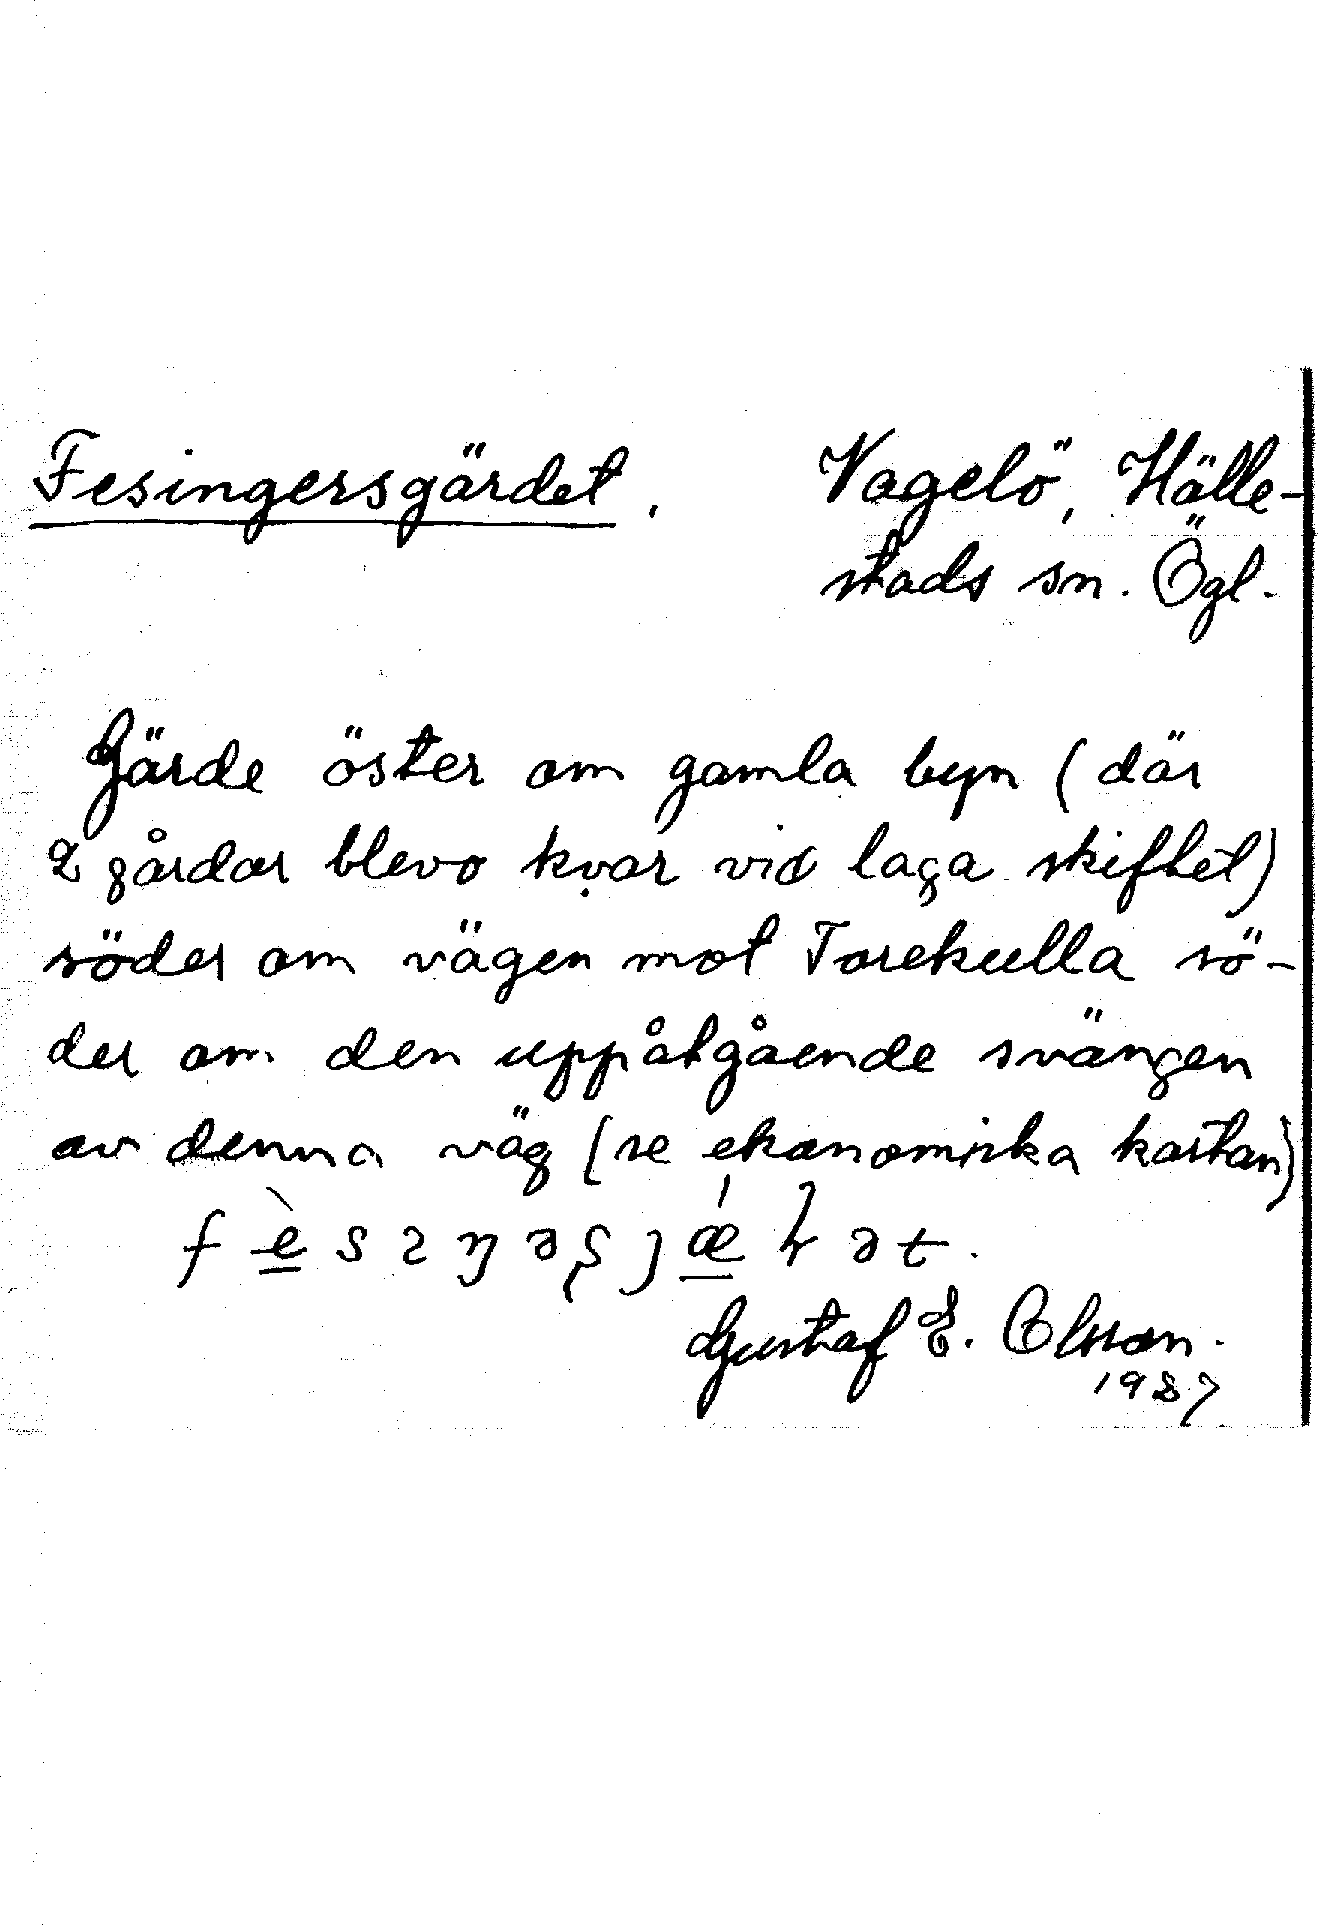 Fesingersgärdet. Vagelö, Hälle-
stads sn. Ögl.
Gärde öster om gamla byn (där
2 gårdar blevo kvar vid laga skiftet)
söder om vägen mot Torekulla sö-
der om den uppåtgående svängen
av denna väg (se ekonomiska kartan)
Gustaf E. Olsson.
1987